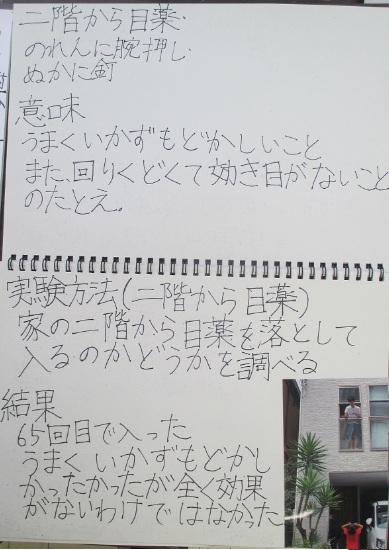 二階から目薬・
のれんに腕押し・
ぬかに釘
意味
うまくいかずもどかしいこと
また、回りくどくて効き目がないこと
のたとえ。
実験方法(二階から目薬)
家の二階から目薬を落として
入るのかどうかを調べる
結果
65回目で入った
うまくいかずもどかし
かったかったが全く効果
がないわけではなかった